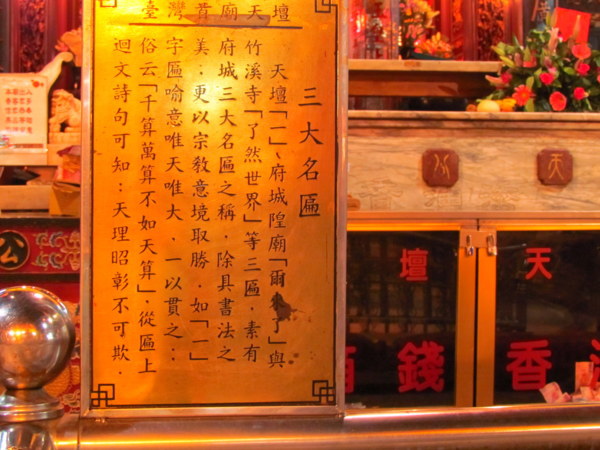 臺灣首廟天壇
三大名匾
天壇「一」、府城隍廟「爾來了」與
竹溪寺「了然世界」等三匾，素有
府城三大名匾之稱，除具書法之
美；更以宗教意境取勝，如「一」
字匾喻意唯天唯大，一以貫之；
俗云「千算萬算不如天算」，從匾上
迴文詩句可知：天理昭彰不可欺．
公
天公
天壇
香錢